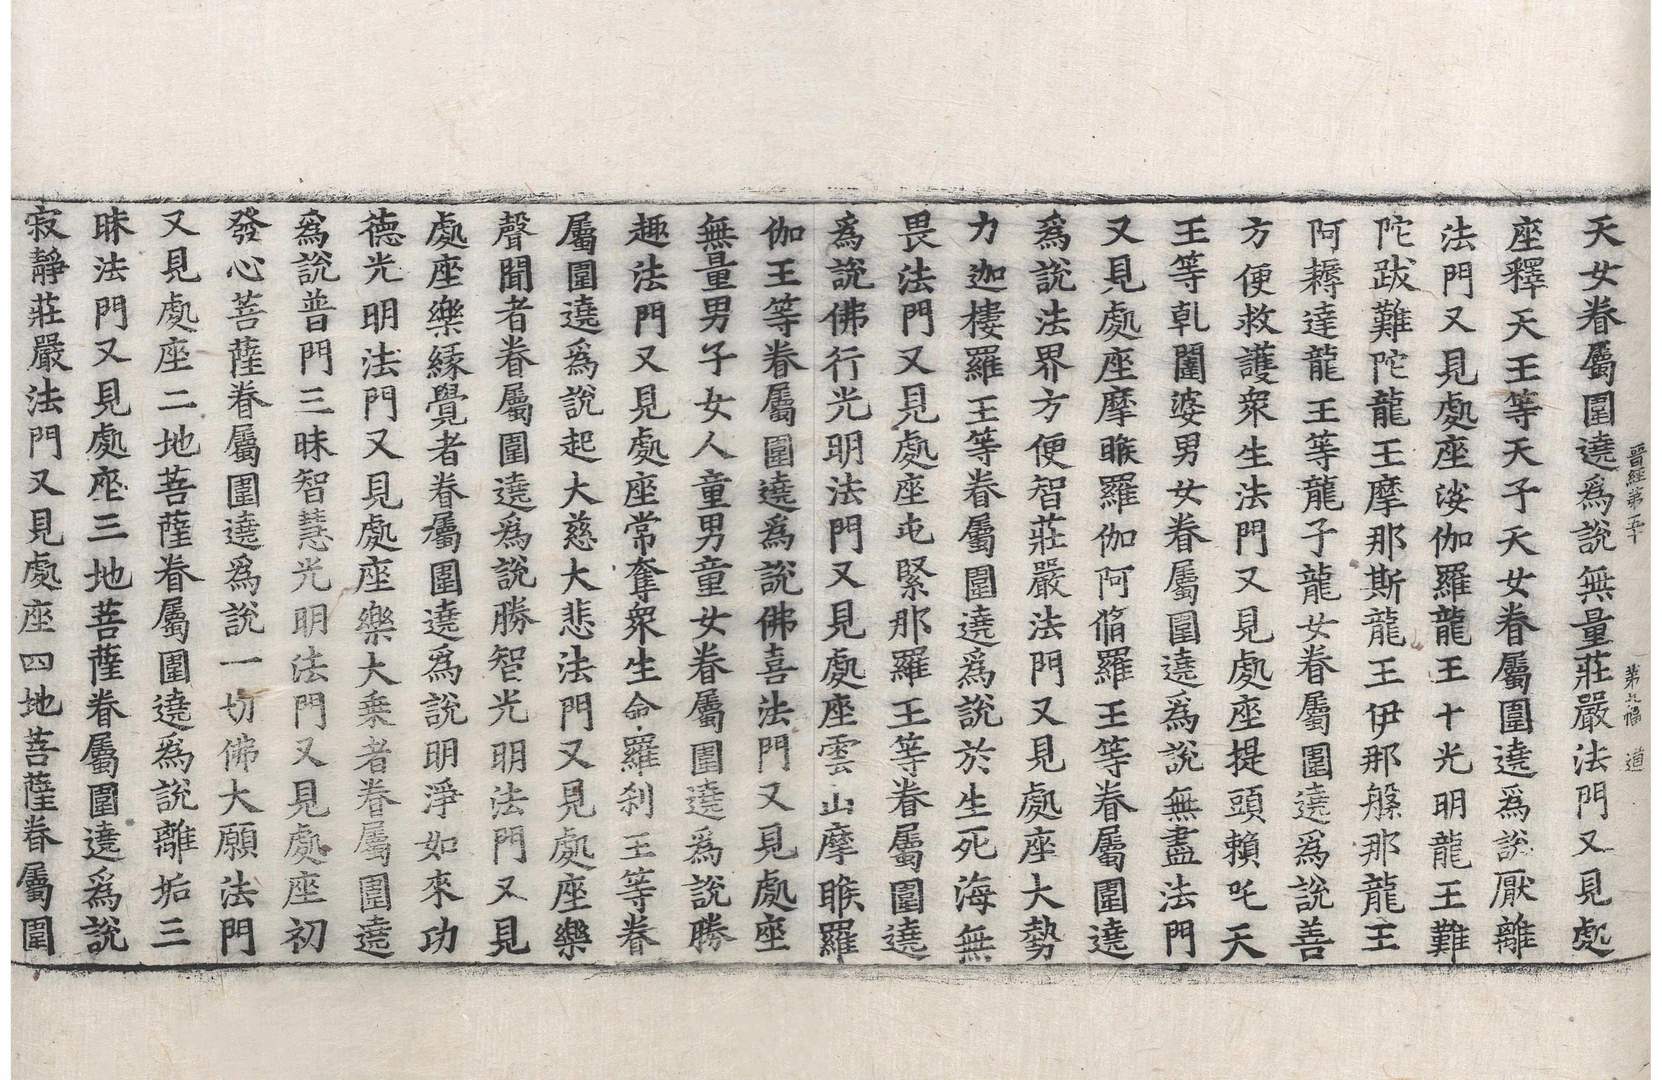 晉經第五十　第九幅　道
天女眷屬圍遶爲說無量莊嚴法門又見處
座釋天王等天子天女眷屬圍遶爲說厭離
法門又見處座娑伽羅龍王十光明龍王難
陀跋難陀龍王摩那斯龍王伊那槃那龍王
阿耨達龍王等龍子龍女眷屬圍遶爲說善
方便救護衆生法門又見處座提頭賴吒天
王等乹闥婆男女眷屬圍遶爲說無盡法門
又見處座摩睺羅伽阿脩羅王等眷屬圍遶
爲說法界方便智莊嚴法門又見處座大勢
力迦樓羅王等眷屬圍遶爲說於生死海無
畏法門又見處座屯緊那羅王等眷屬圍遶
爲說佛行光明法門又見處座雲山摩睺羅
伽王等眷屬圍遶爲說佛喜法門又見處座
無量男子女人童男童女眷屬圍遶爲說勝
趣法門又見處座常奪衆生命羅刹王等眷
屬圍遶爲說起大慈大悲法門又見處座樂
聲聞者眷屬圍遶爲說勝智光明法門又見
處座樂緣覺者眷屬圍遶爲說明淨如來功
德光明法門又見處座樂大乗者眷屬圍遶
爲說普門三昧智慧光明法門又見處座初
發心菩薩眷屬圍遶爲說一切佛大願法門
又見處座二地菩薩眷屬圍遶爲說離垢三
昧法門又見處座三地菩薩眷屬圍遶爲說
寂靜莊嚴法門又見處座四地菩薩眷屬圍